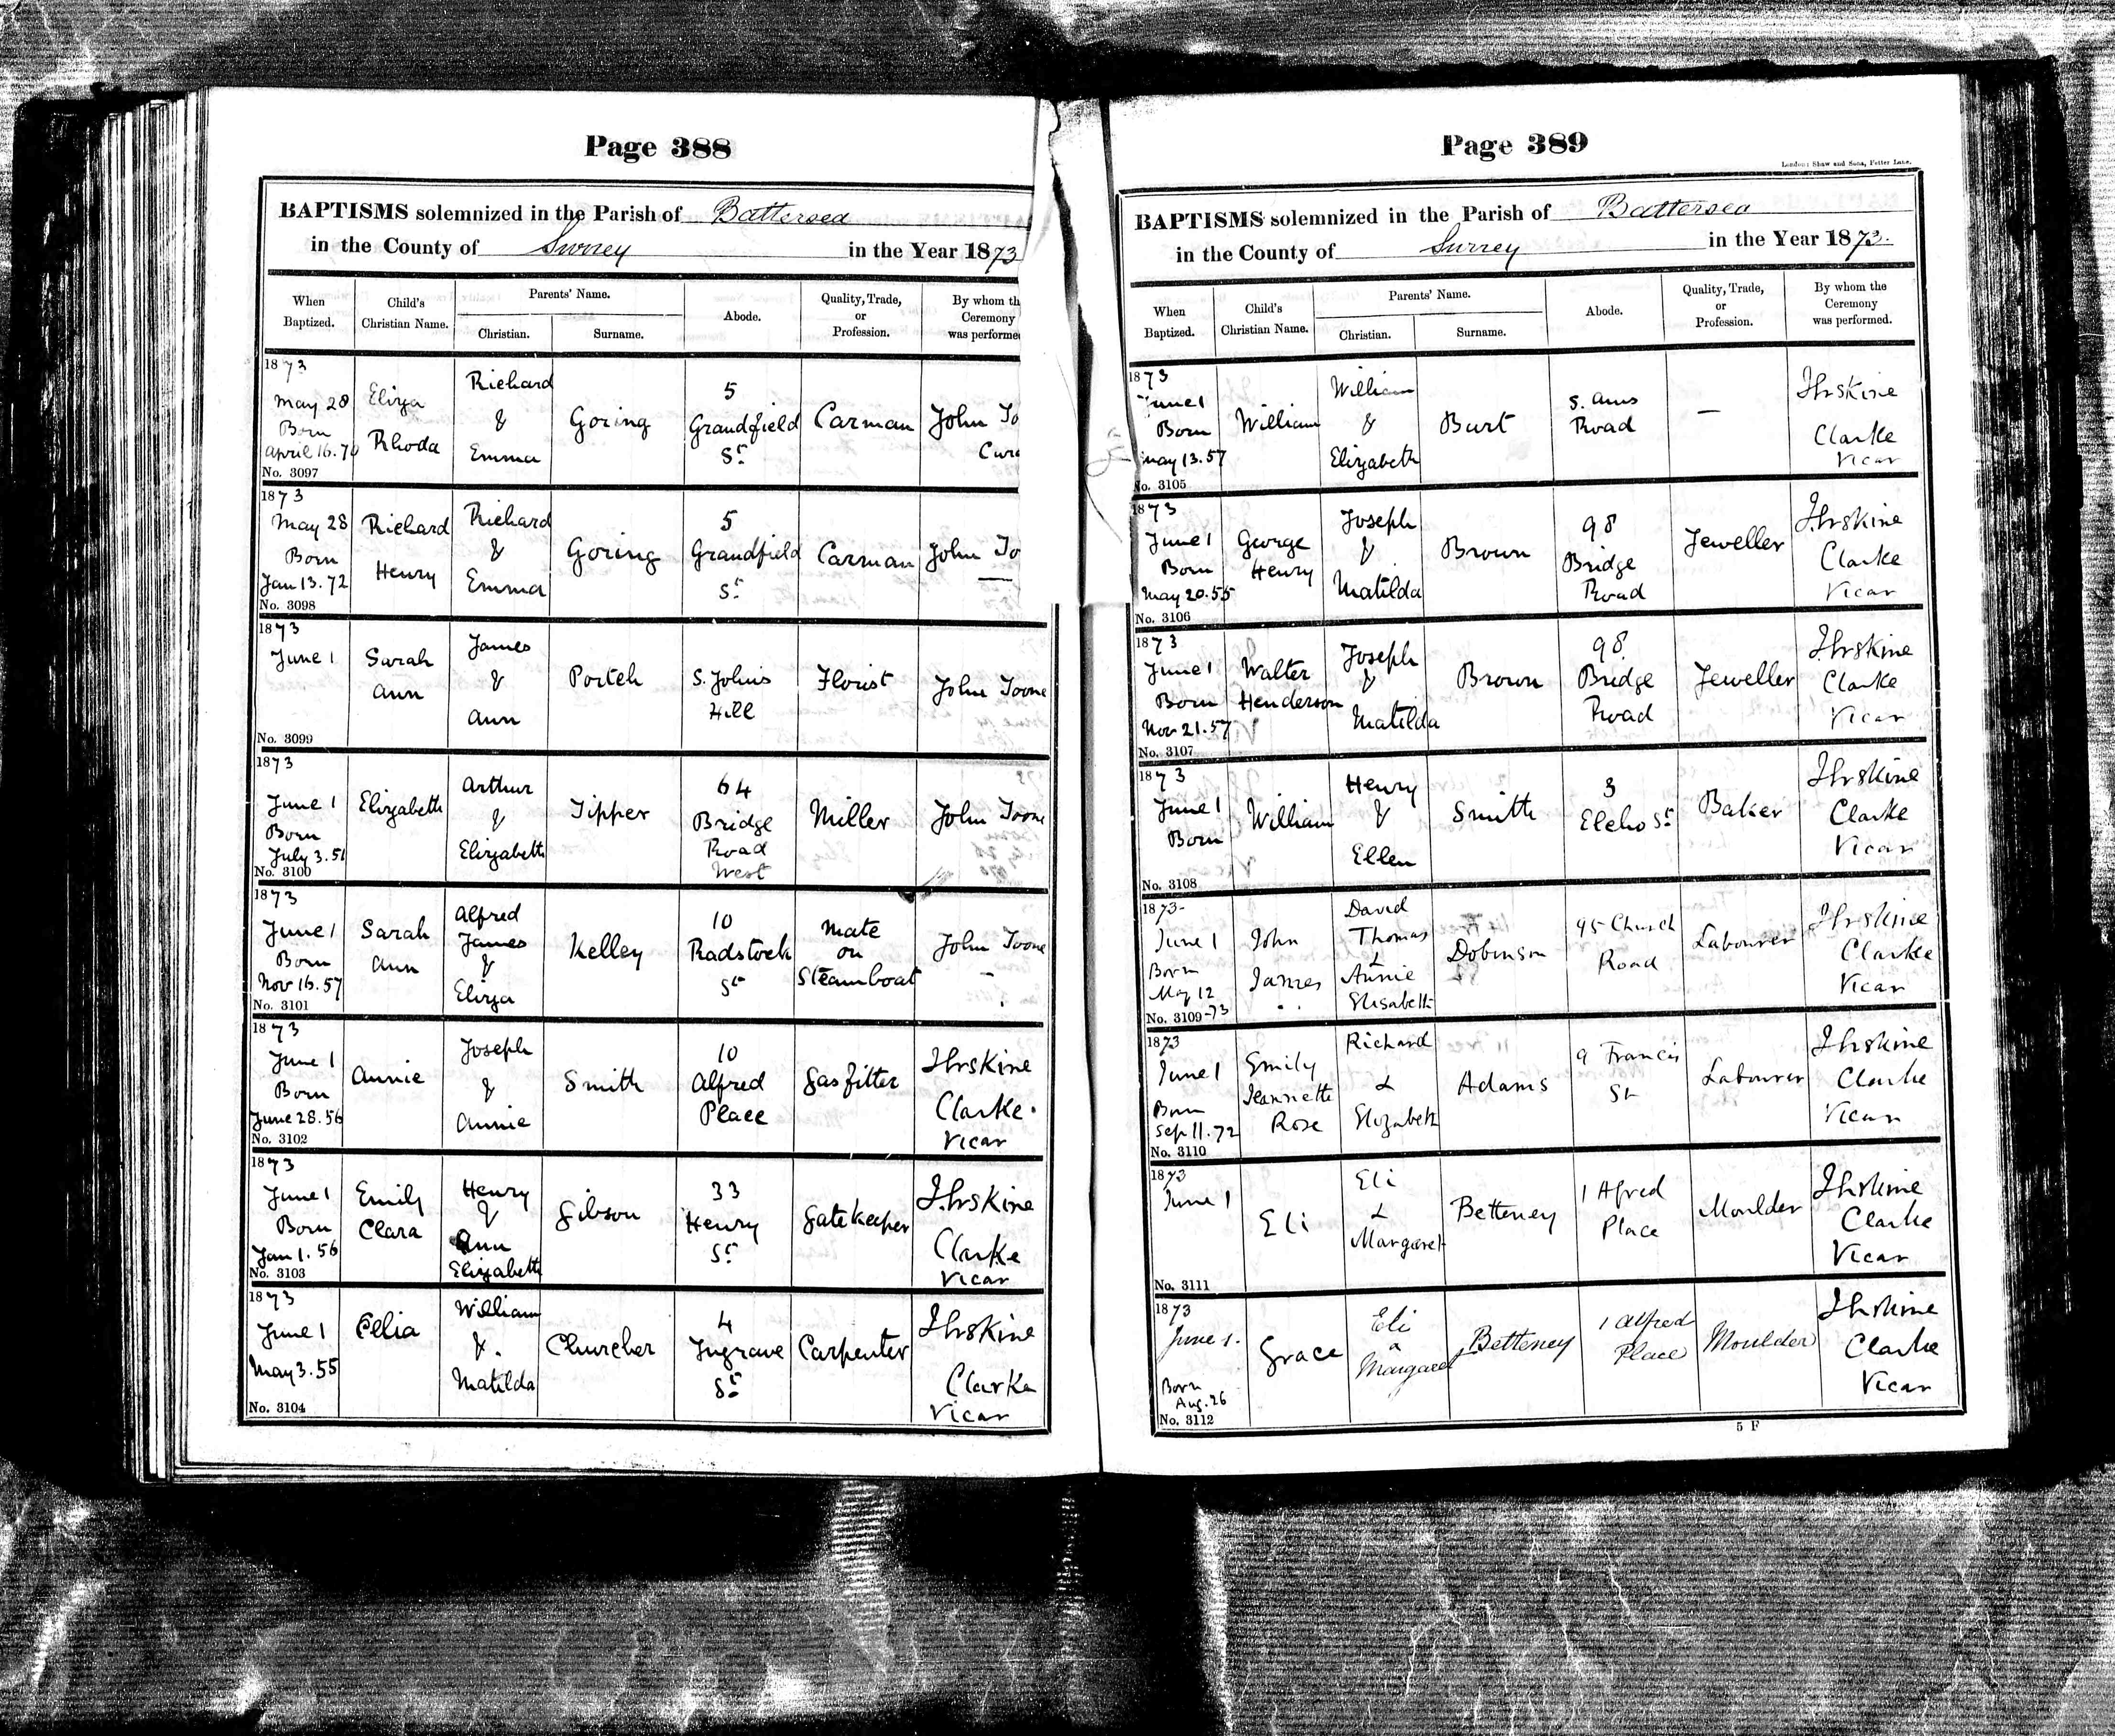 Page 388
BAPTISMS solemnized in the Parish of Battersea
in the County of Surrey in the Year 1873
When Baptized.
Child's Christian Name.
Parents' Name.
Christian.
Surname.
Abode.
Quality, Trade, or Profession.
By whom th
Ceremony
was performed
1873
May 28
Born
April 16. 70
No. 3097
Eliza
Rhoda
Richard
&
Emma
Goring
5
Grandfield
St
Carman
John To
Cura
1873
May 28
Born
Jan 13. 72
No. 3098
Richard
Henry
Richard
&
Emma
Goring
5
Grandfield
St
Carman
John To
1873
June 1
No. 3099
Sarah
Ann
James
&
Ann
Portch
S. John's
Hill
Florist
John Toone
1873
June 1
Born
July 3. 51
No. 3100
Elizabeth
Arthur
&
Elizabeth
Tipper
64
Bridge
Road
West
Miller
John Toone
1873
June 1
Born
Nov 16. 57
No. 3101
Sarah
Ann
Alfred
James
&
Eliza
Kelley
10
Radstock
St
Mate
on
Steamboat
John Toone
1873
June 1
Born
June 28. 56
No. 3102
Annie
Joseph
&
Annie
Smith
10
Alfred
Place
Gasfitter
J Erskine
Clarke.
Vicar
1873
June 1
Born
Jan 1. 56
No. 3103
Emily
Clara
Henry
&
Ann
Elizabeth
Gibson
33
Henry
St
Gatekeeper
J. Erskine
Clarke
Vicar
1873
June 1
May 3. 55
No. 3104
Celia
William
&.
Matilda
Churcher
4
Ingrave
St
Carpenter
J Erskine
Clarke
Vicar
Page 389
London: Shaw and Sons, Fetter Lane.
BAPTISMS solemnized in the Parish of Battersea
in the County of Surrey in the Year 1873.
When Baptized.
Child's Christian Name.
Parents' Name.
Christian.
Surname.
Abode.
Quality, Trade, or Profession.
By whom the Ceremony was performed.
1873
June 1
Born
May 13. 57
No. 3105
William
William
&
Elizabeth
Burt
S. Anns
Road
—
J Erskine
Clarke
Vicar
1873
June 1
Born
May 20. 55
No. 3106
George
Henry
Joseph
&
Matilda
Brown
98
Bridge
Road
Jeweller
J Erskine
Clarke
Vicar
1873
June 1
Born
Nov 21. 57
No. 3107
Walter
Henderson
Joseph
&
Matilda
Brown
98
Bridge
Road
Jeweller
J Erskine
Clarke
Vicar
1873
June 1
Born
No. 3108
William
Henry
&
Ellen
Smith
3
Elcho St
Baker
J Erskine
Clarke
Vicar
1873-
June 1
Born
May 12
No. 3109 -73
John
James
David
Thomas
&
Annie
Elisabeth
Dobinson
95 Church
Road
Labourer
J Erskine
Clarke
Vicar
1873
June 1
Born
Sep 11. 72
No. 3110
Emily
Jeannette
Rose
Richard
&
Elizabeth
Adams
9 Francis
St
Labourer
J Erskine
Clarke
Vicar
1873
June 1
No. 3111
Eli
Eli
&
Margaret
Betteney
1 Alfred
Place
Moulder
J Erskine
Clarke
Vicar
1873
June 1.
Born
Aug. 26
No. 3112
Grace
Eli
&
Margaret
Betteney
1 Alfred
Place
Moulder
J Erskine
Clarke
Vicar
5 F